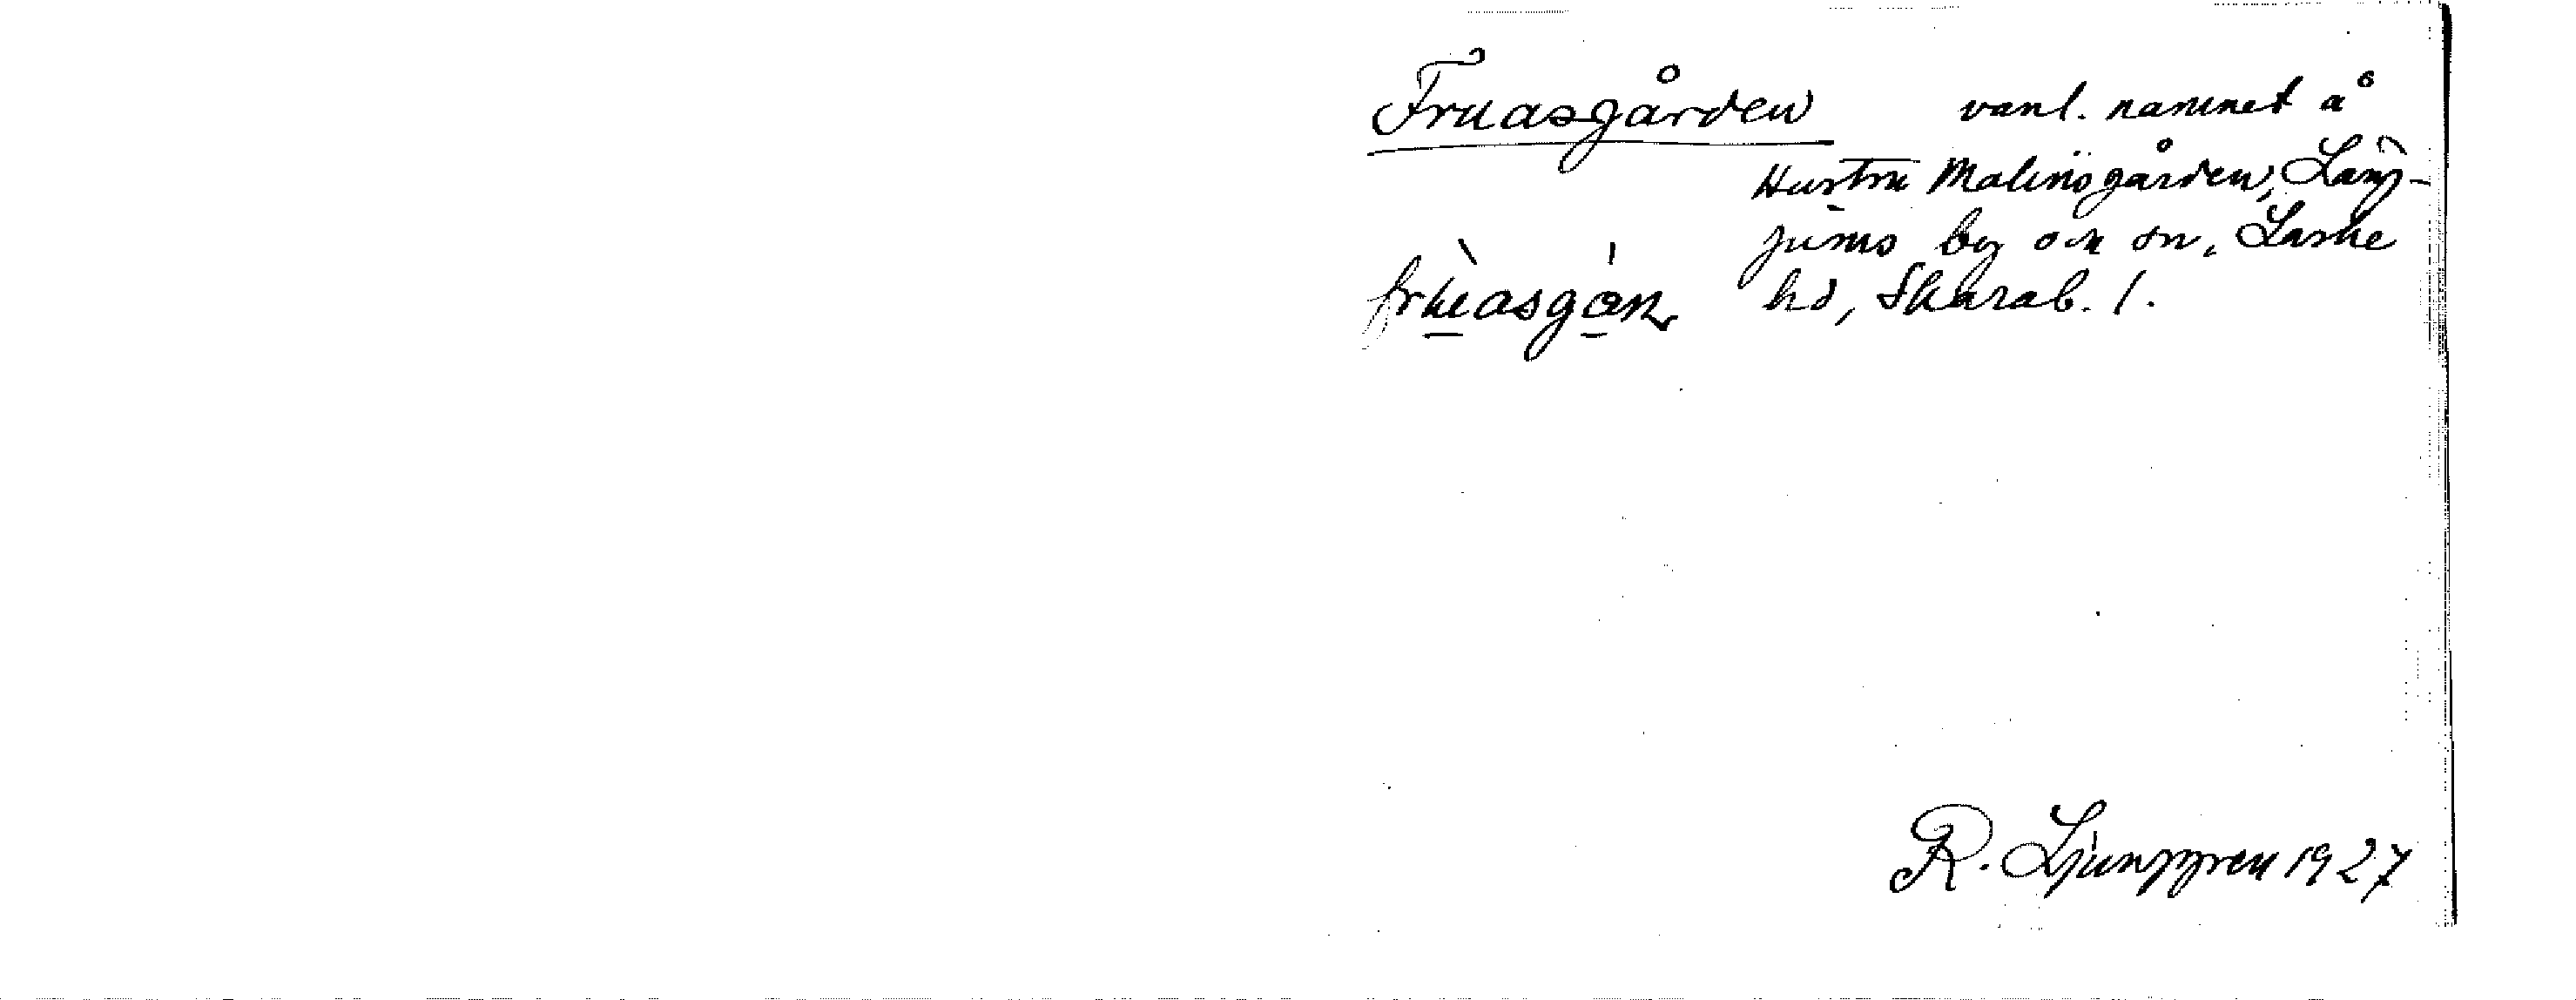 Fruasgården vanl. namnet å
Hustru Malinsgården, Läng-
jums by och sn, Laske
frùasgà̱ɳ hd, Skarab. l.
R. Ljunggren 1927